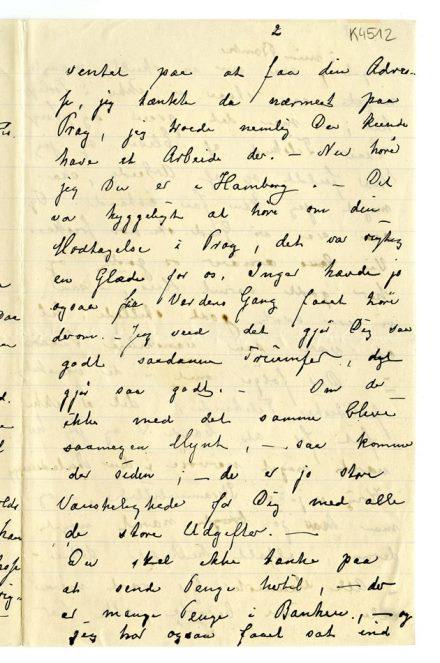 2
K4512
ventet paa at faa din Adres-
se, jeg tænkte da nærmest paa
Prag, jeg troede nemlig Du kunde
have et Arbeide der. – Nu hører
jeg Du er i Hamborg. – Det
var hyggeligt at høre om din
Modtagelse i Prag, det var rigtig
en Glæde for os. Inger havde jo
ogsaa fra Verdens Gang faaet høre
derom. – Jeg veed det gjør Dig saa
godt saadanne Triumfer, det
gjør saa godt. – Om de
ikke med det samme blive
saamegen Mynt, – saa komme
der siden; – de er jo store
Vanskeligheder for Dig med alle
de store Udgifter. –
Du skal ikke tænke paa
at sende Penge hertil, – der
er mange Penge i Banken, – og
jeg har ogsaa faaet sat ind